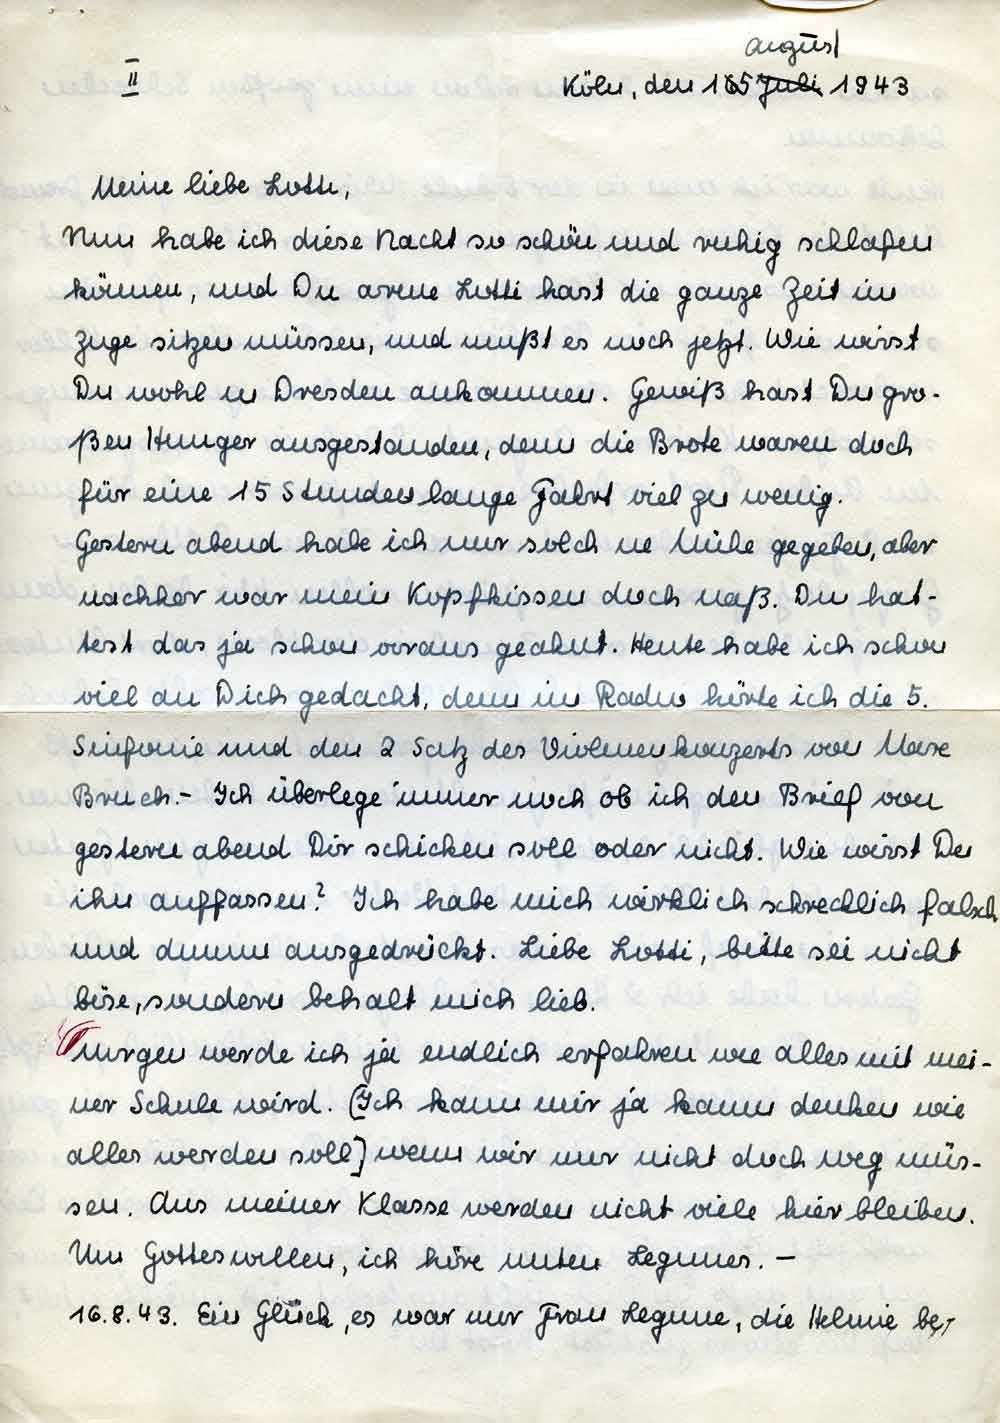 II
August
Köln, den 15 Juli 1943
Meine liebe Lotti,
Nun habe ich diese Nacht so schön und ruhig schlafen
können, und Du arme Lotti hast die ganze Zeit im
Zuge sitzen müssen, und mußt es noch jetzt. Wie wirst
Du wohl in Dresden ankommen. Gewiß hast Du gro-
ßen Hunger ausgestanden, denn die Brote waren doch
für eine 15 Stunden lange Fahrt viel zu wenig.
Gestern abend habe ich mir solch ne Mühe gegeben, aber
nachher war mein Kopfkissen doch naß. Du hat-
test das ja schon voraus geahnt. Heute habe ich schon
viel an Dich gedacht, denn im Radio hörte ich die 5.
Sinfonie und den 2 Satz des Violinenkonzerts von Max
Bruch.- Ich überlege immer noch ob ich den Brief von
gestern abend Dir schicken soll oder nicht. Wie wirst Du
ihn auffassen? Ich habe mich wirklich schrecklich falsch
und dumm ausgedrückt. Liebe Lotti, bitte sei nicht
böse, sondern behalt mich lieb.
Morgen werde ich ja endlich erfahren wie alles mit mei-
ner Schule wird. (Ich kann mir ja kaum denken wie
alles werden soll) wenn wir nur nicht doch weg müs-
sen. Aus meiner Klasse werden nicht viele hier bleiben.
Um Gotteswillen, ich höre unten Legunes. —
16.8.43. Ein Glück, es war nur Frau Legune, die Helmie